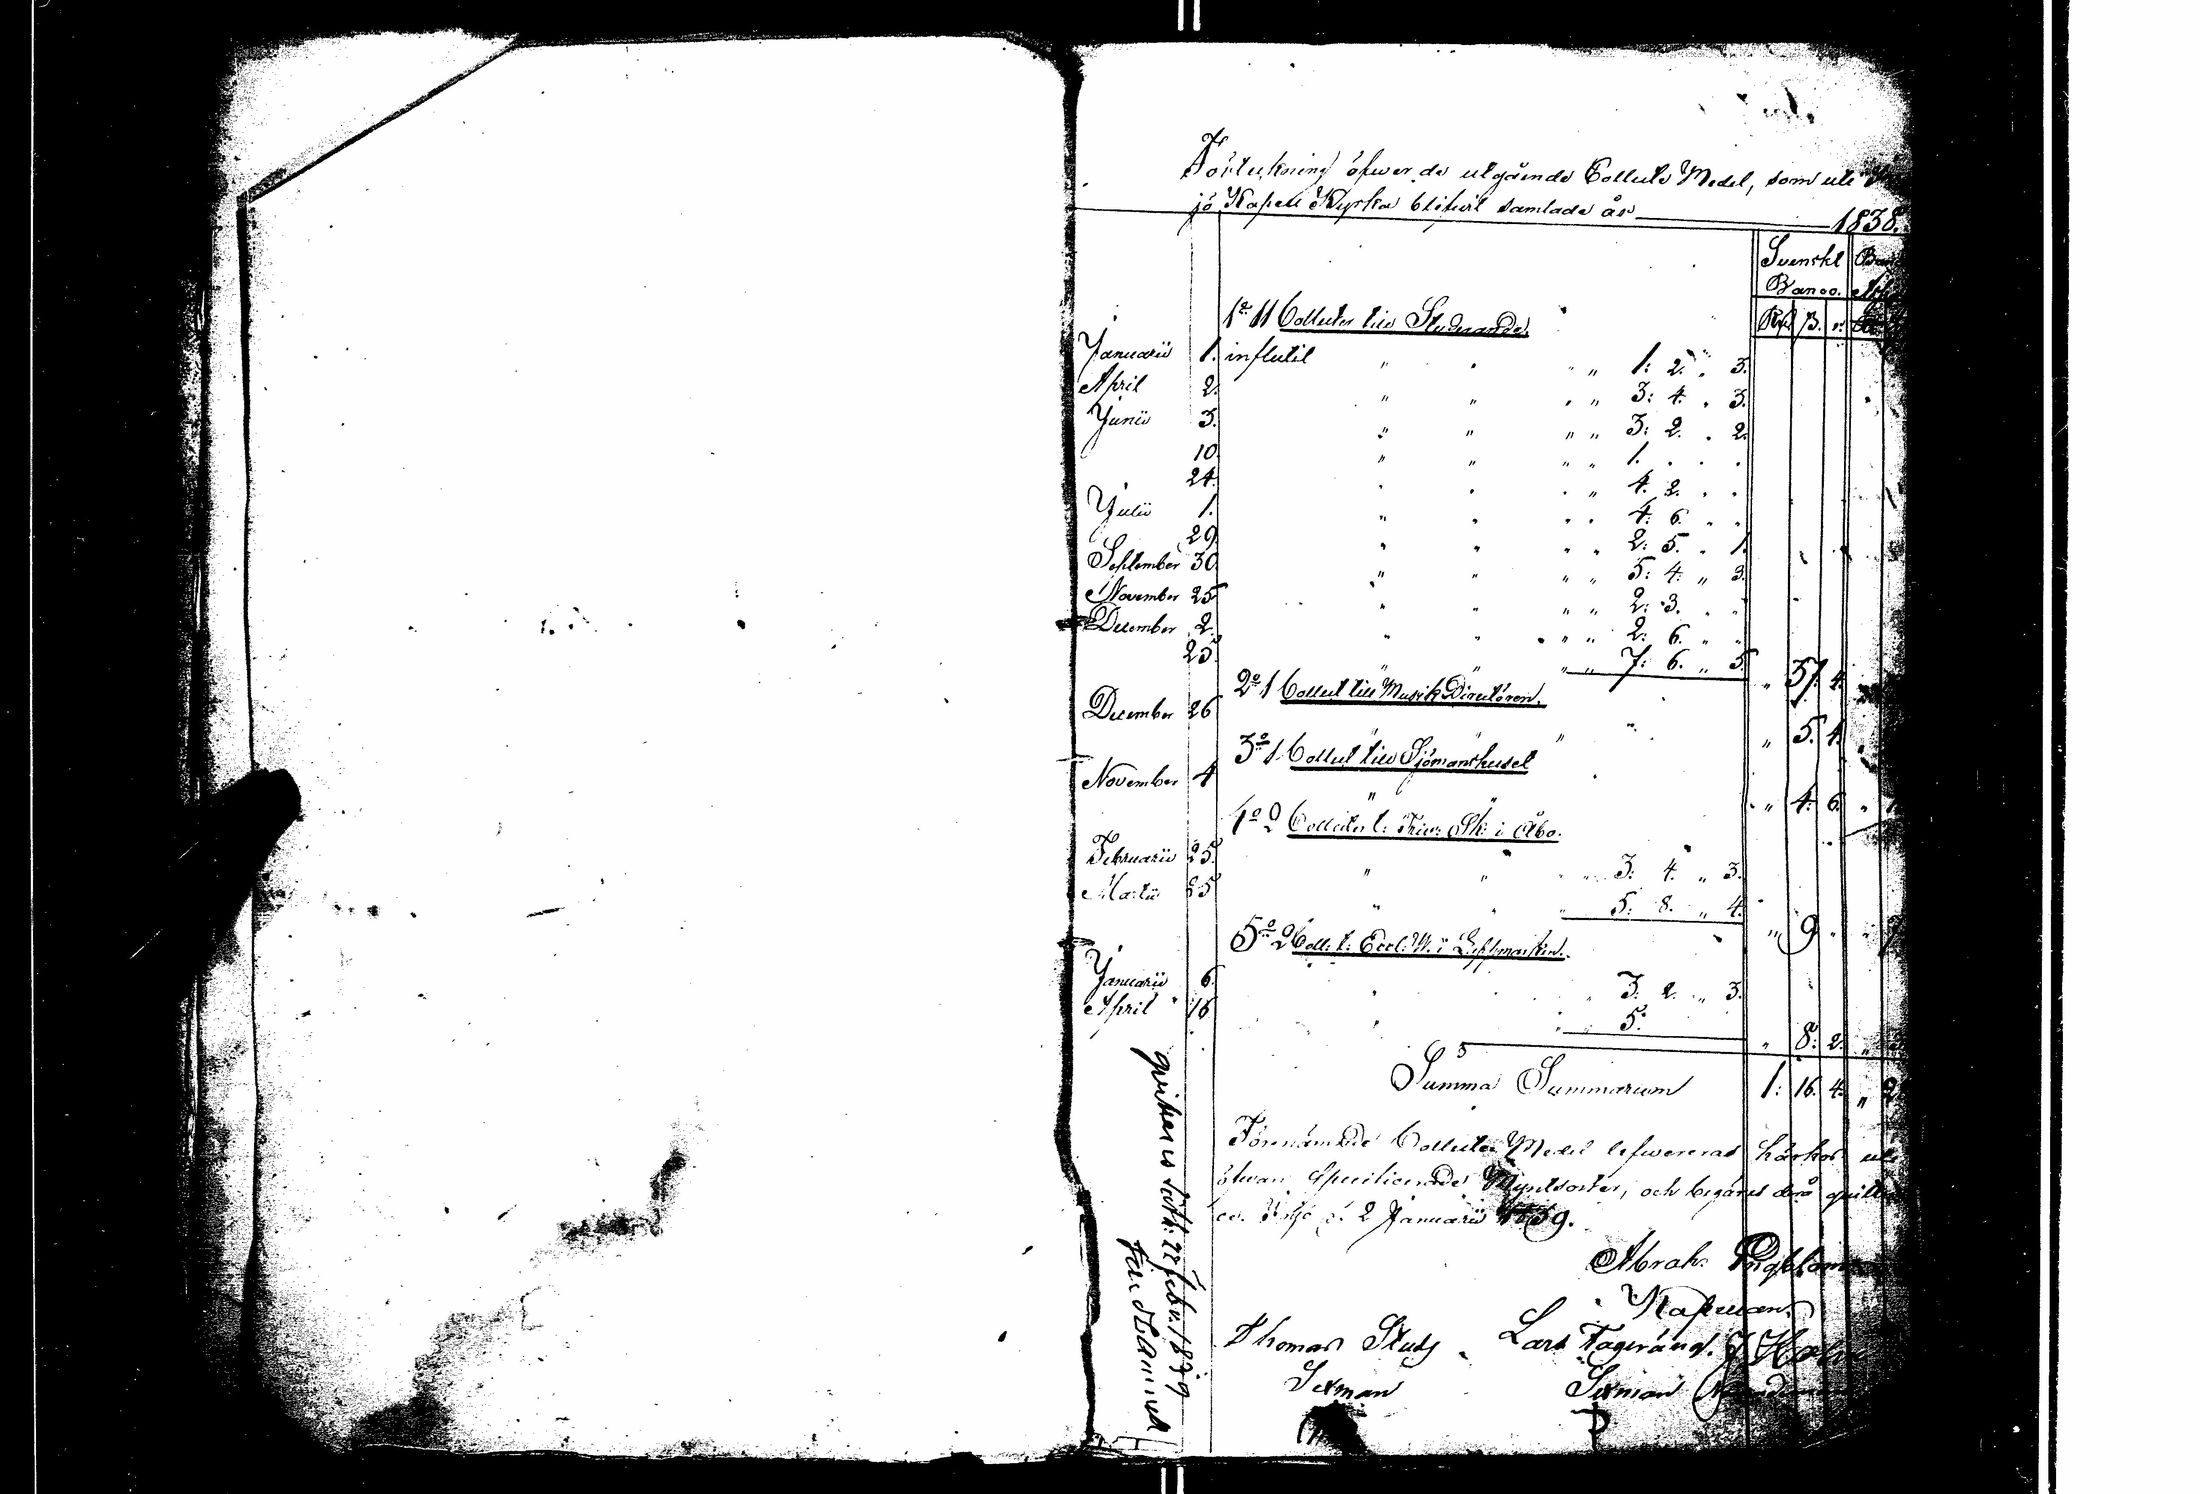 Förteckning öfwer de utgående Collecte Medel, som uti
jö Kapell Kyrka blifwit samlade år 1838.
Svenskt
Banco.
Rd. ß. r.
1o 11 Collecter till Studerande.
Januarii 1. influtit " " " " 1: 2. " 3.
April 2. " " " " 3: 4. " 3.
Junii 3. " " " " 3: 2. " 2.
10. " " " " 1. " " "
24. " " " " 4. 2. " "
Julii 1. " " " " 4: 6. " "
29. " " " " 2: 5. " 1.
September 30. " " " " 5: 4: " 3.
November 25. " " " " 2: 3. " "
December 2. " " " " 2: 6. " "
25. " " " " 7: 6. " 5. " 37. 4.
2o 1 Collect till Musik Directören.
December 26 " " " " 5. 4.
3o 1 Collect till Sjömanshuset
November 4 " " " 4: 6. "
4o 2 Collecter t: Triv: Sk: i Åbo.
Februarii 25. " " " 3: 4. " 3.
Martii 25 " " " 5: 8. " 4. " 9 "
5o 2 Coll: t: Eccl: W. i Lappmarken.
Januarii 6. " " " 3. 2. " 3.
April 16 " " " 5: " 8: 2. "
Summa Summarum 1: 16. 4. " 2
Förenämnde Collecte Medel lefwereras härhos uti
ofwan specificerade Myntsorter, och begäres derå
2 Januarii 1839.
Abrah.
Kapellan.
Thomas Lars J Holm
Sexman Sexman
qvitteras 22 Febr. 1839